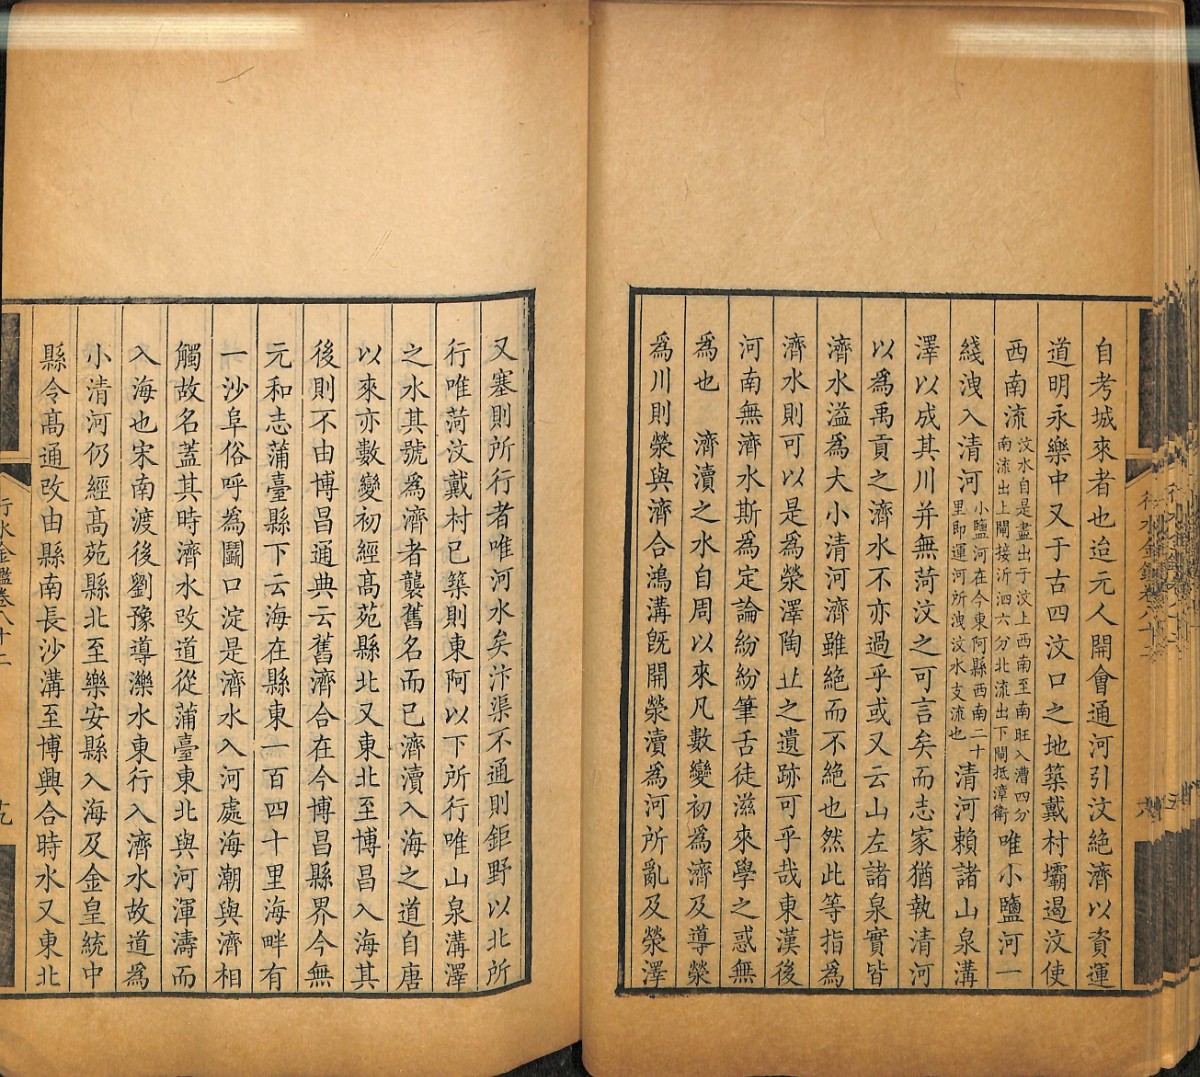 自考城來者也迨元人開會通河引汶絕濟以資運
道明永樂中又于古四汶口之地築戴村壩遏汶使
西南流汶水自是盡出于汶上西南至南旺入漕四分南流出上閘接沂泗六分北流出下閘抵漳衛唯小鹽河一
綫洩入清河小鹽河在今東阿縣西南二十里即運河所洩汶水支流也清河賴諸山泉溝
澤以成其川并無菏汶之可言矣而志家猶執清河
以爲禹貢之濟水不亦過乎或又云山左諸泉實皆
濟水溢爲大小清河濟雖絕而不絕也然此等指爲
濟水則可以是爲滎澤陶丠之遺跡可乎哉東漢後
河南無濟水斯爲定論紛紛筆舌徒滋來學之惑無
爲也 濟瀆之水自周以來凡數變初爲濟及導滎
爲川則滎與濟合鴻溝旣開滎瀆爲河所亂及滎澤
又塞則所行者唯河水矣汴渠不通則鉅野以北所
行唯菏汶戴村已築則東阿以下所行唯山泉溝澤
之水其號爲濟者襲舊名而已濟瀆入海之道自唐
以來亦數變初經高苑縣北又東北至博昌入海其
後則不由博昌通典云舊濟合在今博昌縣界今無
元和志蒲臺縣下云海在縣東一百四十里海畔有
一沙阜俗呼爲鬭口淀是濟水入河處海潮與濟相
觸故名蓋其時濟水改道從蒲臺東北與河渾濤而
入海也宋南渡後劉豫導濼水東行入濟水故道爲
小清河仍經高苑縣北至樂安縣入海及金皇統中
縣令高通改由縣南長沙溝至博興合時水又東北
行水金鑑卷八十二
十九